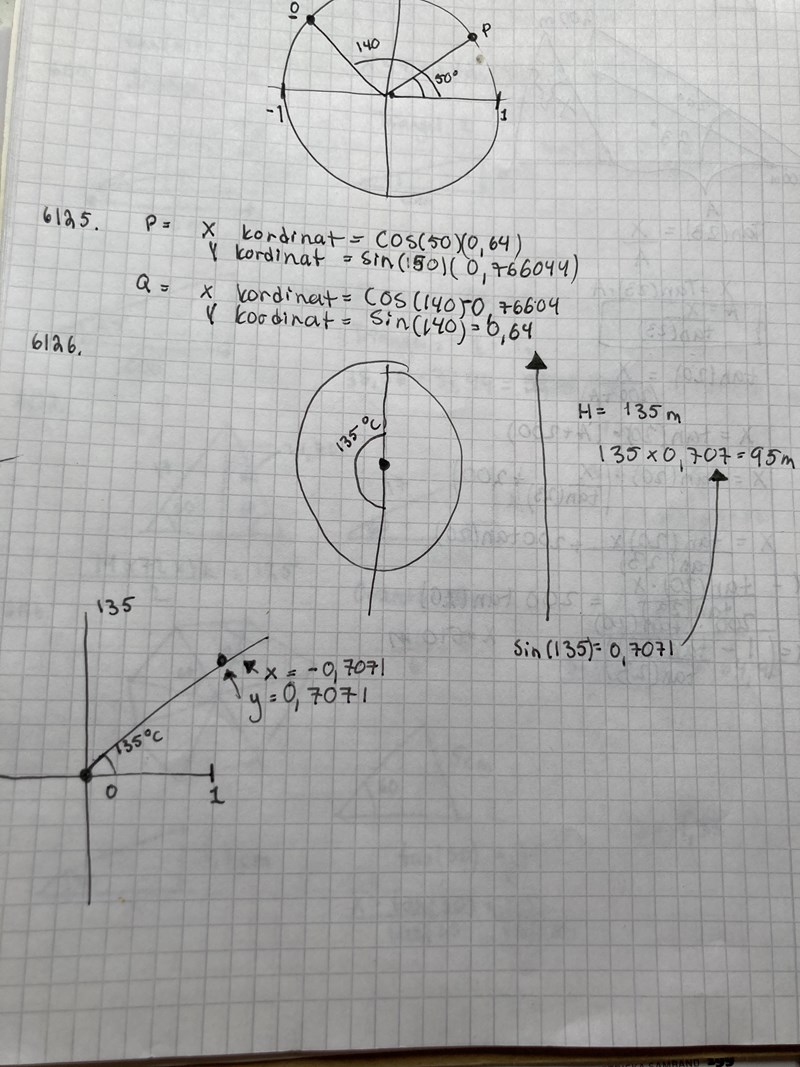 Q
P
140
50°
-1
1
6125. P = X kordinat = COS(50)(0,64)
Y kordinat = sin(150)(0,766044)
Q = X kordinat = COS(140)0,76604
Y koordinat = Sin(140)=0,64
6126.
135°C
H = 135m
135 x 0,707 = 95m
Sin(135)=0,7071
135
x = -0,7071
y = 0,7071
135°C
0
1